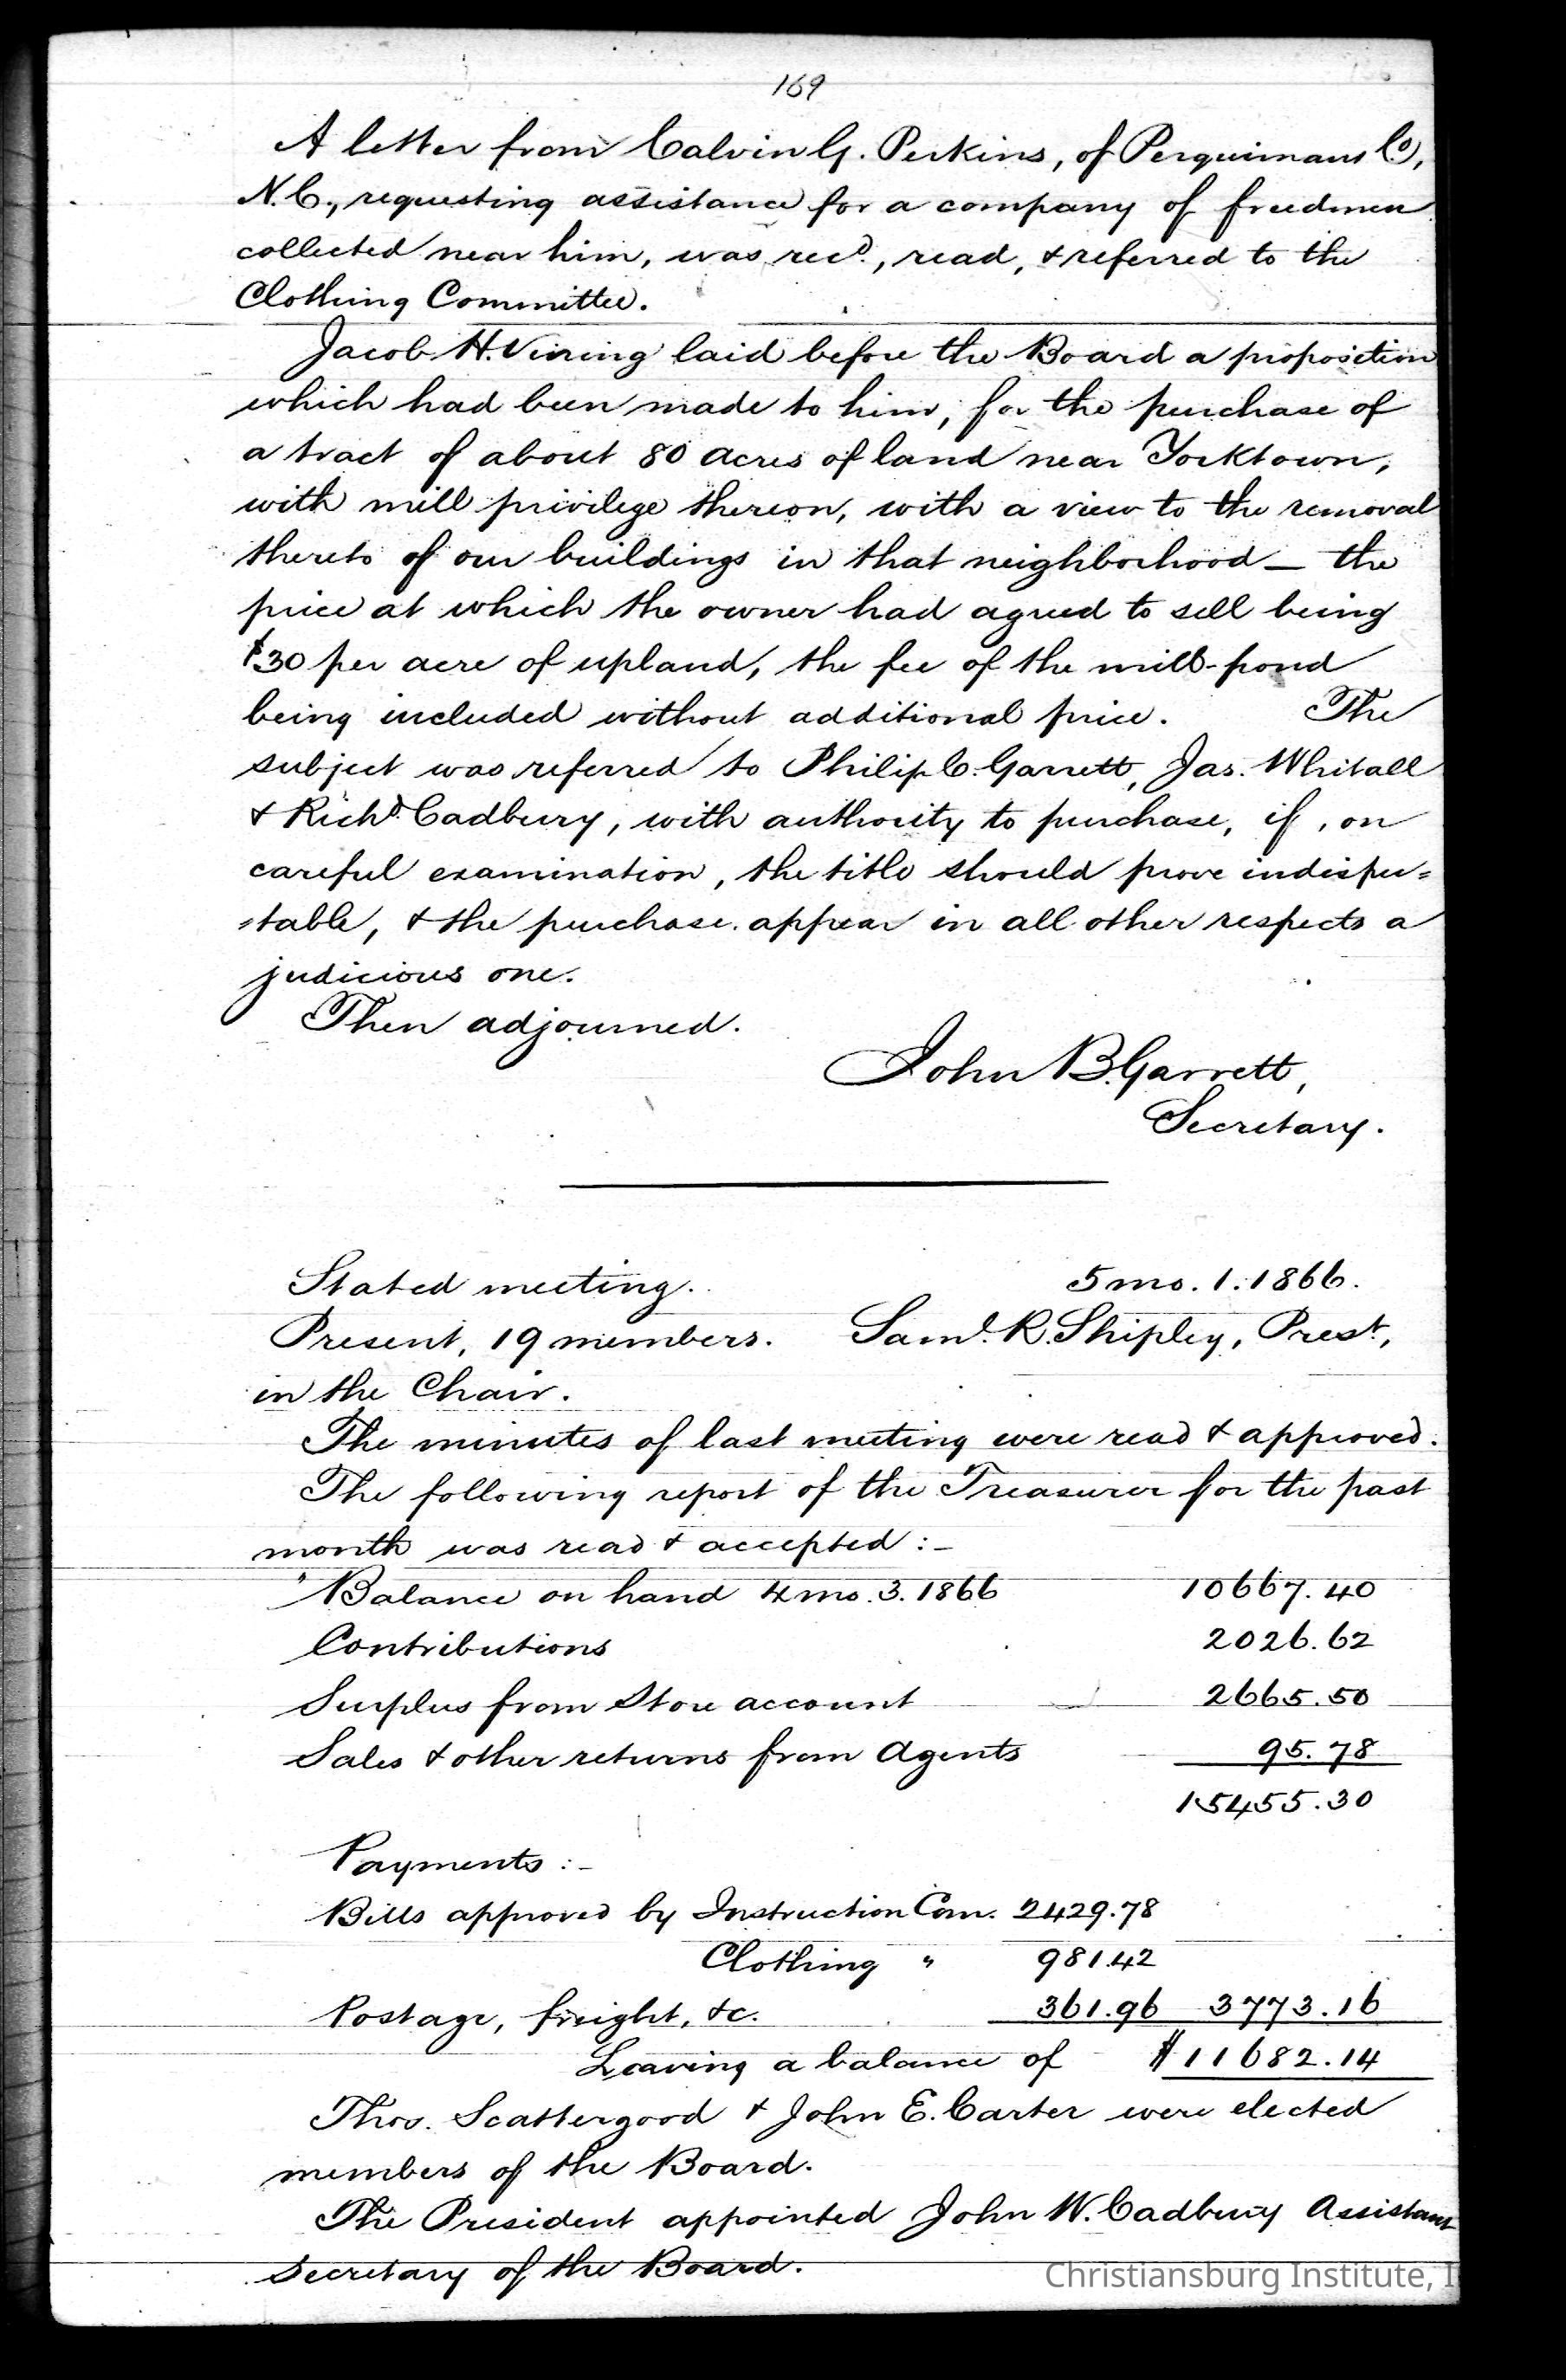 169
A letter from Calvin G. Perkins, of Perquimans Co,
N.C., requesting assistance for a company of freedmen
collected near him, was recd., read, & referred to the
Clothing Committee.
Jacob H. Vining laid before the Board a proposition
which had been made to him, for the purchase of
a tract of about 80 acres of land near Yorktown,
with mill privilege thereon, with a view to the removal
thereto of our buildings in that neighborhood — the
price at which the owner had agreed to sell being
$30 per acre of upland, the fee of the mill-pond
being included without additional price. The
subject was referred to Philip C. Garrett, Jas. Whitall
& Richd. Cadbury, with authority to purchase, if, on
careful examination, the title should prove indispu=
=table, & the purchase appear in all other respects a
judicious one.
Then adjourned.
John B. Garrett,
Secretary.
Stated meeting. 5 mo. 1. 1866.
Present, 19 members. Saml. R. Shipley, Prest.,
in the Chair.
The minutes of last meeting were read & approved.
The following report of the Treasurer for the past
month was read & accepted :-
"Balance on hand 4 mo. 3. 1866 10667.40
Contributions 2026.62
Surplus from Store account 2665.50
Sales & other returns from Agents 95.78
15455.30
Payments :-
Bills approved by Instruction Com. 2429.78
Clothing " 981.42
Postage, freight, &c. 361.96 3773.16
Leaving a balance of $11682.14
Thos. Scattergood & John E. Carter were elected
members of the Board.
The President appointed John W. Cadbury Assistant
Secretary of the Board.
Christiansburg Institute, I